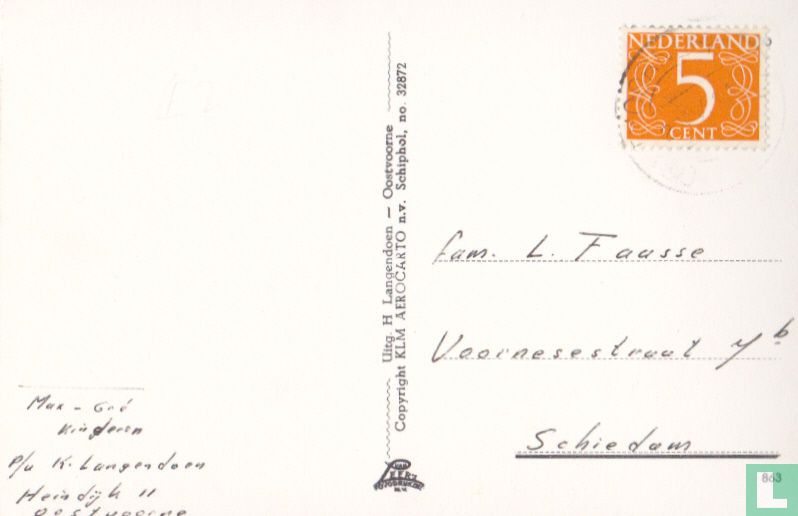 NEDERLAND
5
CENT
Uitg. H Langendoen — Oostvoorne
Copyright KLM AEROCARTO n.v. Schiphol, no. 32872
fam. L. Faasse
Voornesestraat 7b
Schiedam
Max - Gré
Kinderen
p/a K. Langendoen
Heindijk 11
Oostvoorne
VAN
LEER'S
FOTODRUK
N.V.
863
catawiki